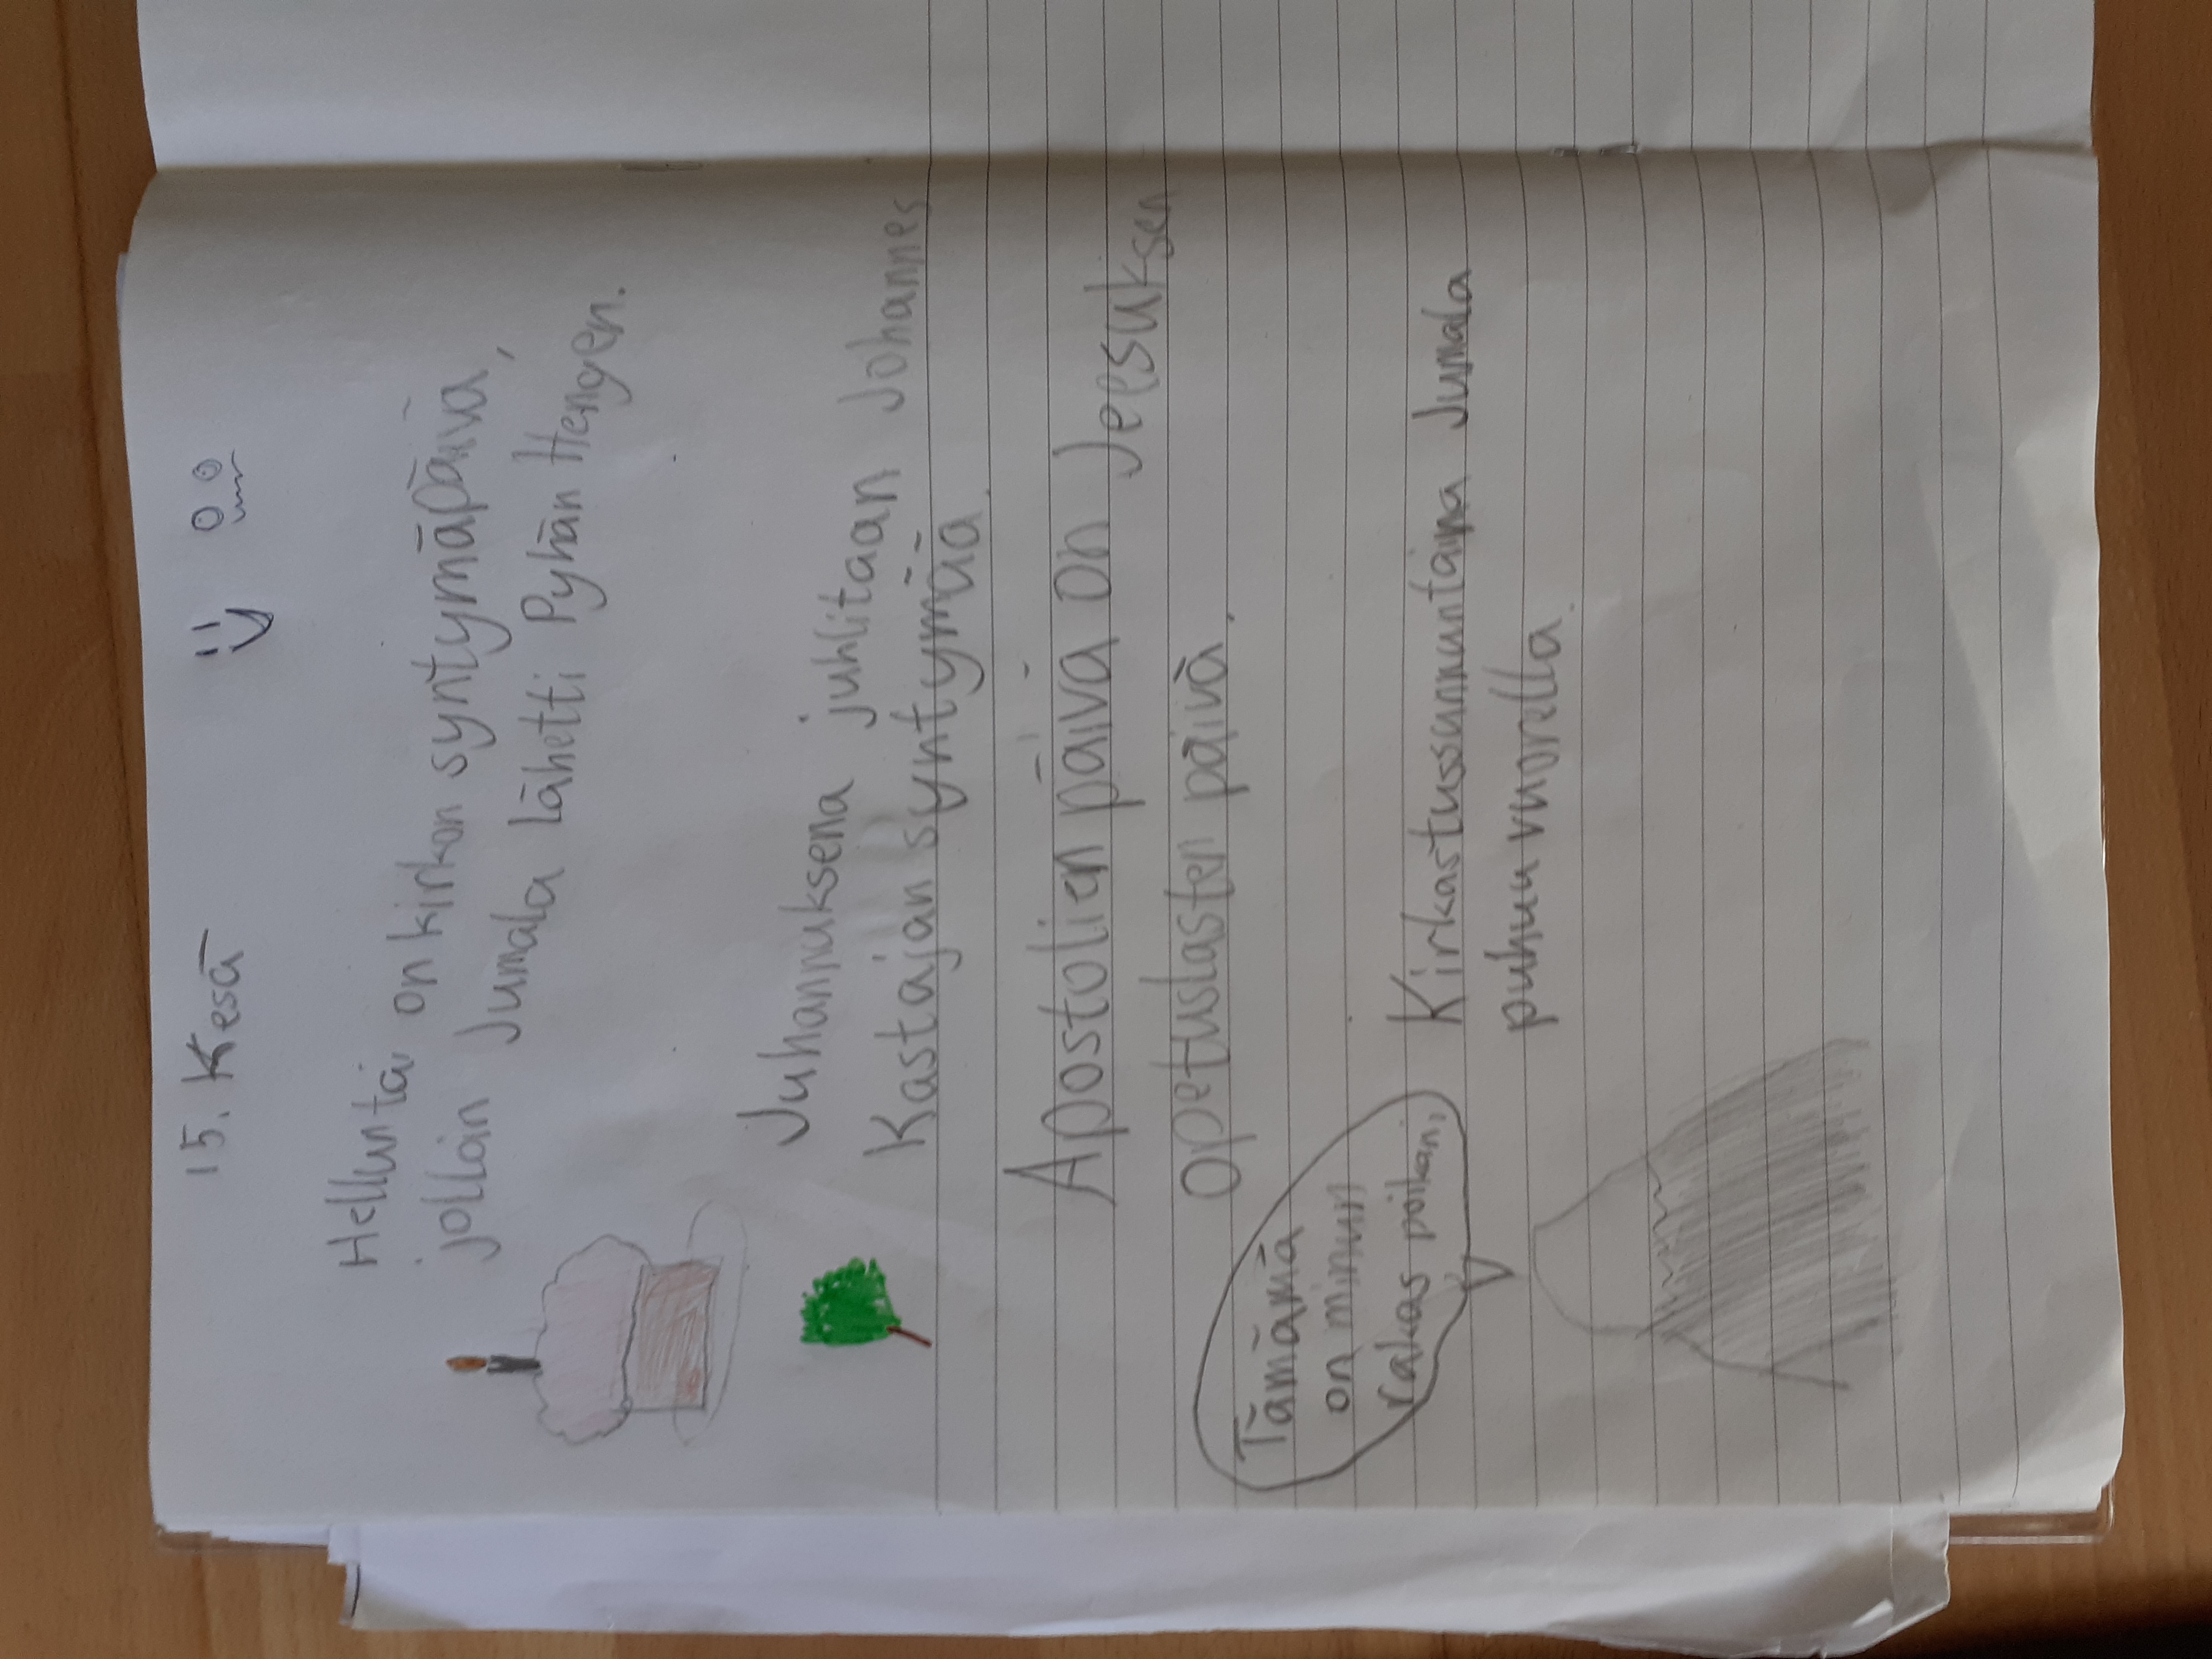 15. Kesä
Helluntai on kirkon syntymäpäivä,
jolloin Jumala lähetti Pyhän Hengen.
Juhannuksena juhlitaan Johannes
Kastajan syntymää.
Apostolien päivä on Jeesuksen
opetuslasten päivä.
Tämämä
on minun
rakas poikani,
Kirkastussunnuntaina Jumala
puhuu vuorella.